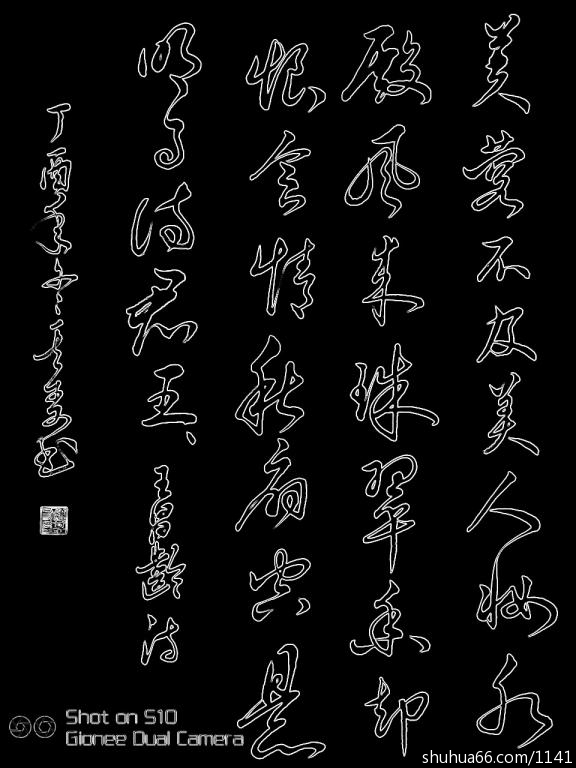 芙蓉不及美人妝水
殿風來珠翠香却
恨含情秋扇空懸
明月待君王、
王昌齡詩
丁酉年冬月書
Shot on S10
Gionee Dual Camera
shuhua66.com/1141